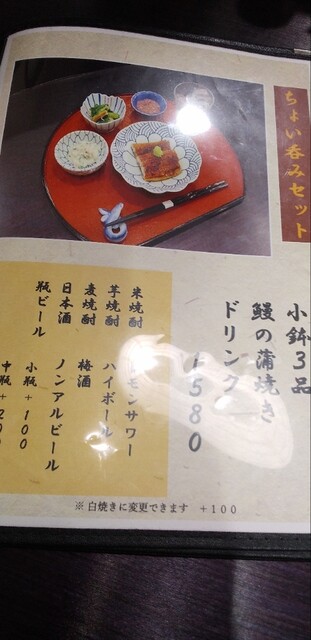 ちょい呑みセット
小鉢3品
鰻の蒲焼き
ドリンク
1580
米焼酎
芋焼酎
麦焼酎
日本酒
瓶ビール
レモンサワー
ハイボール
梅酒
ノンアルビール
小瓶+100
中瓶+200
※白焼きに変更できます +100